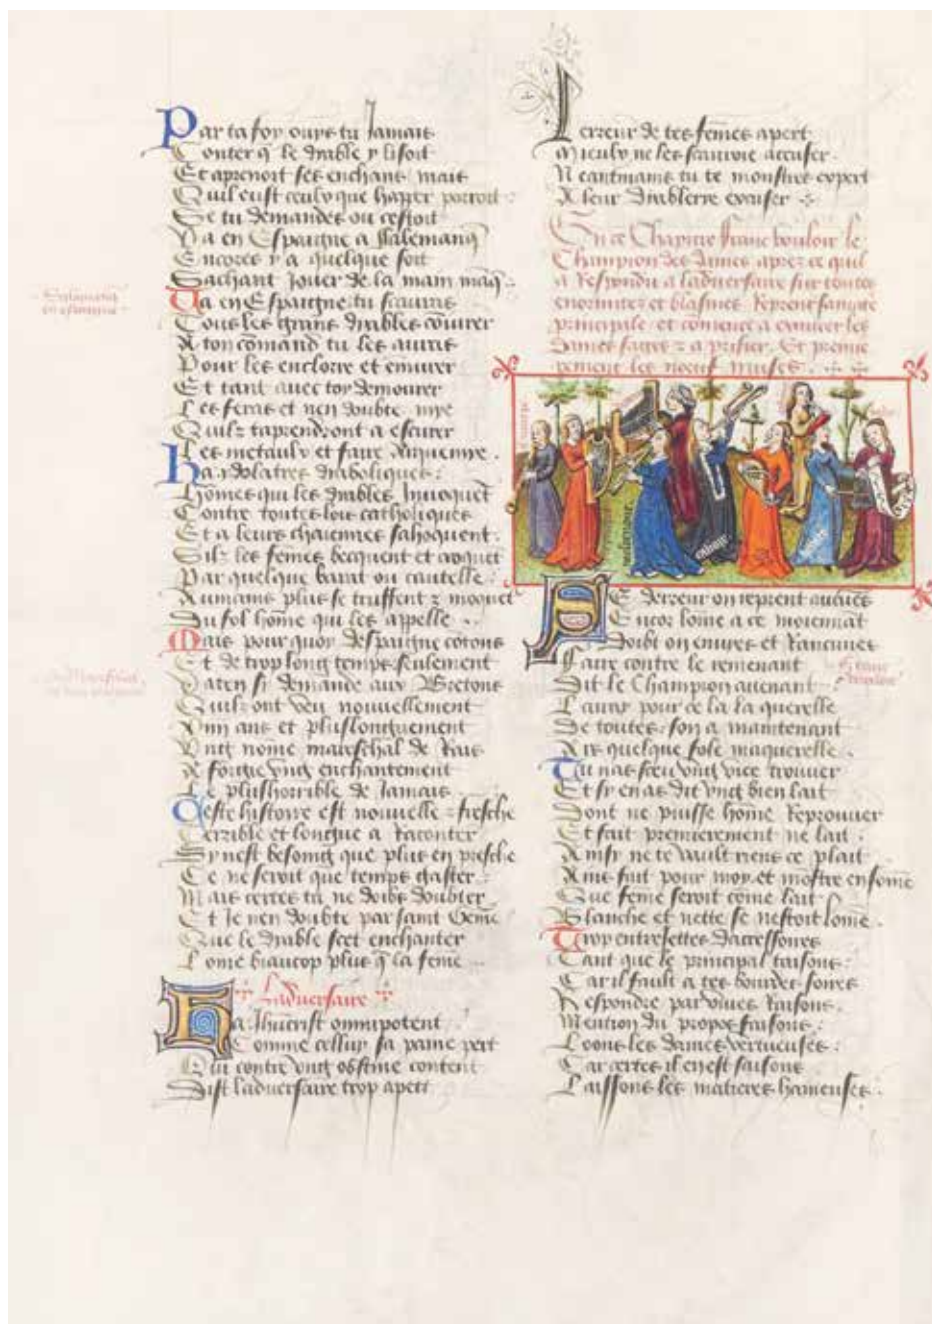 Par ta foy ouys tu Jamais
Conter q̄ le diable y lisoit
Et aprenoit ses enchant mais
Quil eust ceulx que happer porroit
Se tu demandes ou cestoit
Va en Espaigne a Salemanq̄
Encores y a quelque soit
Sachant Jouer de la main manq̄
Va en Espaigne tu scauras
Tous les grans diables cōiurer
A ton cōmand tu les auras
Pour les enclorre et emurer
Et tant avec toy demourer
Les feras et nen doubte mye
Quilz taprendront a escurer
Les metaulx et faire Arquemye
Ha ydolatres diaboliques
Hōmes qui les diables Invoquēt
Contre toutes lois catholiques
Et a leurs charennes sahoquent
Silz les femes becquent et croquēt
Par quelque barat ou cautelle
Aumains plus se truffent ⁊ moquēt
Du fol hōme qui les apelle
Mais pour quoy despaigne cotons
Et de trop long temps seulement
Va ten sy demande aux Bretons
Quilz ont veu nouvellement
Xiiij ans et pluslonguement
Ung nome mareschal de Rais
A forgie ung enchantement
Le plushorrible de Jamais
Ceste histoire est nouvelle ⁊ fresche
Terrible et longue a Raconter
Sy nest besoing que plus en presche
Ce ne seroit que temps gaster
Mais certes tu ne doibs doubter
Et Je nen doubte par saint
Que le diable scet enchanter
Lome biaucop plus q̄ la feme
Ladversaire
Ha Ihucrist omnipotent
Comme celluy sa paine pert
Qui contre ung obstine content
Dist ladversaire trop apert
Lerreur de tes fēmes apert
Mieulx ne les scauroie accuser
Neantmains tu te monstres expert
A leur diablerie excuser
En ce Chapitre franc vouloir le
Champion des dames aprez ce quil
a Respondu a ladversaire sur toutes
enormitez et blasmes Reprent sa
principale et cōmence a exaucer les
dames sages ⁊ a prisier Et premie
rement les noeuf muses
Se derreur on reprent aucūes
Encor lome a ce moiennāt
Doibt on envies et Rancunes
Faire contre le remenant
Dit le Champion avenant
Lauras pour ce la la querelle
De toutes son a maintenant
Ars quelque fole maquerelle
Tu nas sceu ung vice trouver
Et sy en as dit ung bien lait
Dont ne puisse hōme Reprouver
Et fait premierement ne lait
Ainsy ne te vault riens ce plait
Ains fait pour moy et mōstre en sōme
Que feme seroit cōme lait
Blanche et nette se nestoit lome
Trop entregettes daccessoires
Tant que le principal taisons
Car il fault a tes bourdes soires
Respondre par vives Raisons
Mention du propos faisons
Loons les dames vertueuses
Car certes il en est saisons
Laissons les matieres haineuses